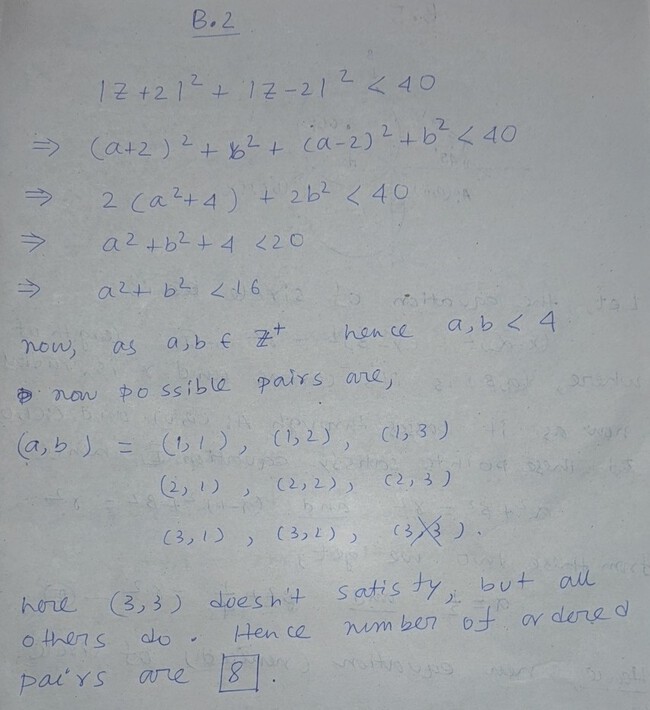 B.2
|z+2|² + |z-2|² < 40
⇒ (a+2)² + b² + (a-2)² + b² < 40
⇒ 2(a²+4) + 2b² < 40
⇒ a²+b²+4 <20
⇒ a²+b² <16
now, as a,b ∈ Z⁺ hence a,b < 4
now possible pairs are,
(a,b) = (1,1), (1,2), (1,3)
(2,1), (2,2), (2,3)
(3,1), (3,2), (3,3).
here (3,3) doesn't satisfy, but all
others do. Hence number of ordered
pairs are 8.